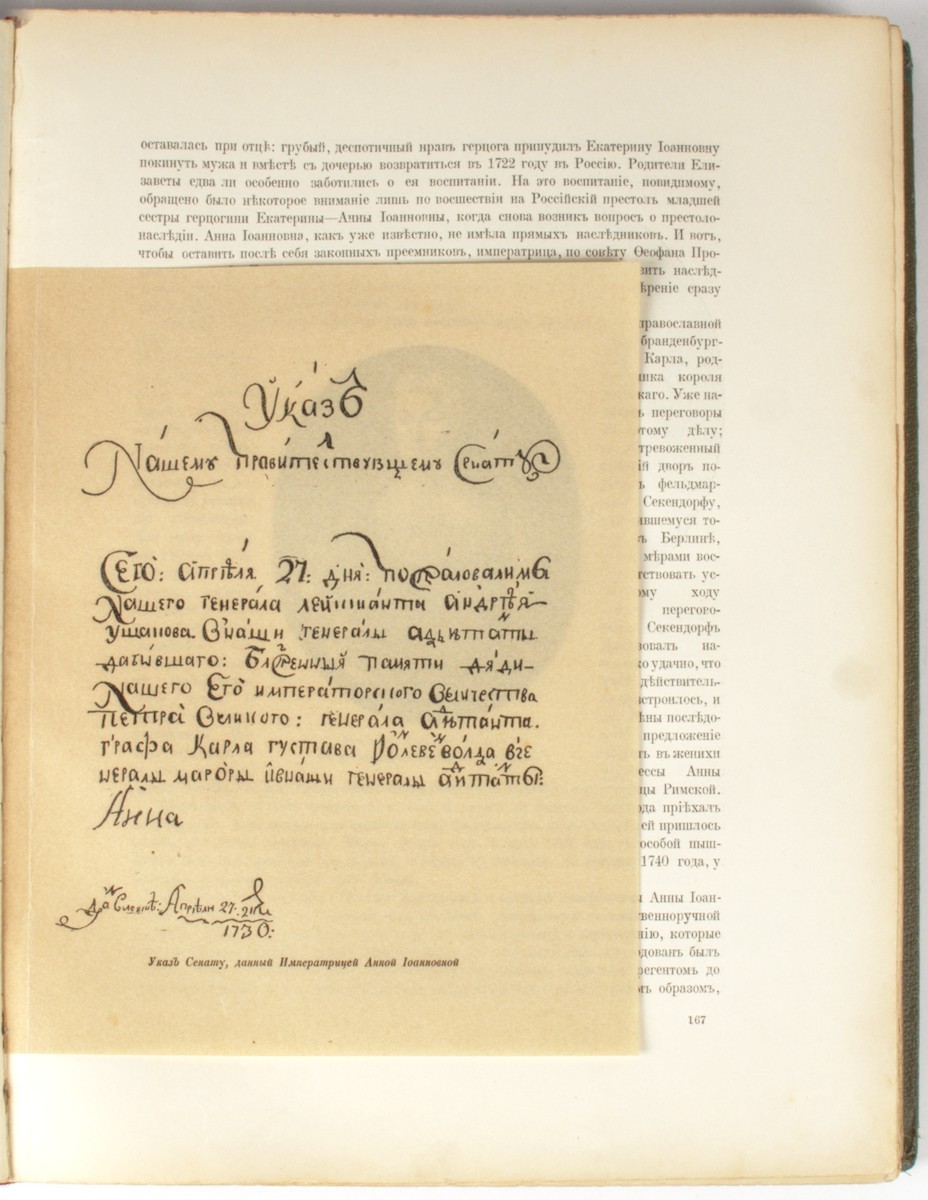 оставалась при отцѣ: грубый, деспотичный нравъ герцога принудилъ Екатерину Іоанновну
покинуть мужа и вмѣстѣ съ дочерью возвратиться въ 1722 году въ Россію. Родители Ели-
заветы едва ли особенно заботились о ея воспитаніи. На это воспитаніе, повидимому,
обращено было нѣкоторое вниманіе лишь по восшествіи на Россійскій престолъ младшей
сестры герцогини Екатерины—Анны Іоанновны, когда снова возникъ вопросъ о престоло-
наслѣдіи. Анна Іоанновна, какъ уже извѣстно, не имѣла прямыхъ наслѣдниковъ. И вотъ,
чтобы оставить послѣ себя законныхъ преемниковъ, императрица, по совѣту Ѳеофана Про-
вить наслѣд-
ѣреніе сразу
православной
бранденбург-
Карла, род-
ника короля
каго. Уже на-
ь переговоры
тому дѣлу;
тревоженный
ій дворъ по-
ъ фельдмар-
Секендорфу,
вшемуся то-
ъ Берлинѣ,
мѣрами вос-
тствовать ус-
ому ходу
перегово-
Секендорфъ
вовалъ на-
ко удачно, что
дѣйствитель-
астроилось, и
ѣны послѣдо-
предложеніе
ть въ женихи
ессы Анны
цы Римской.
да пріѣхалъ
ей пришлось
особой пыш-
1740 года, у
ы Анны Іоан-
твенноручной
нію, которые
дованъ былъ
регентомъ до
мъ образомъ,
167
Указъ
Нашему правителствующему Сенату
Сего: апрѣля 27: дня: пожаловали мы
Нашего генерала лейтнанта андрѣя
ушакова В наши генералы адьютанты
да бывшаго: блаженныя памяти дяди
Нашего Его императорского величества
Петра Великого: генерала адютанта.
графа Карла густава левеволда в ге
нералы маеоры и в наши генералы адютанты:
Анна
Апрѣля 27.
1730:
Указъ Сенату, данный Императрицей Анной Іоанновной